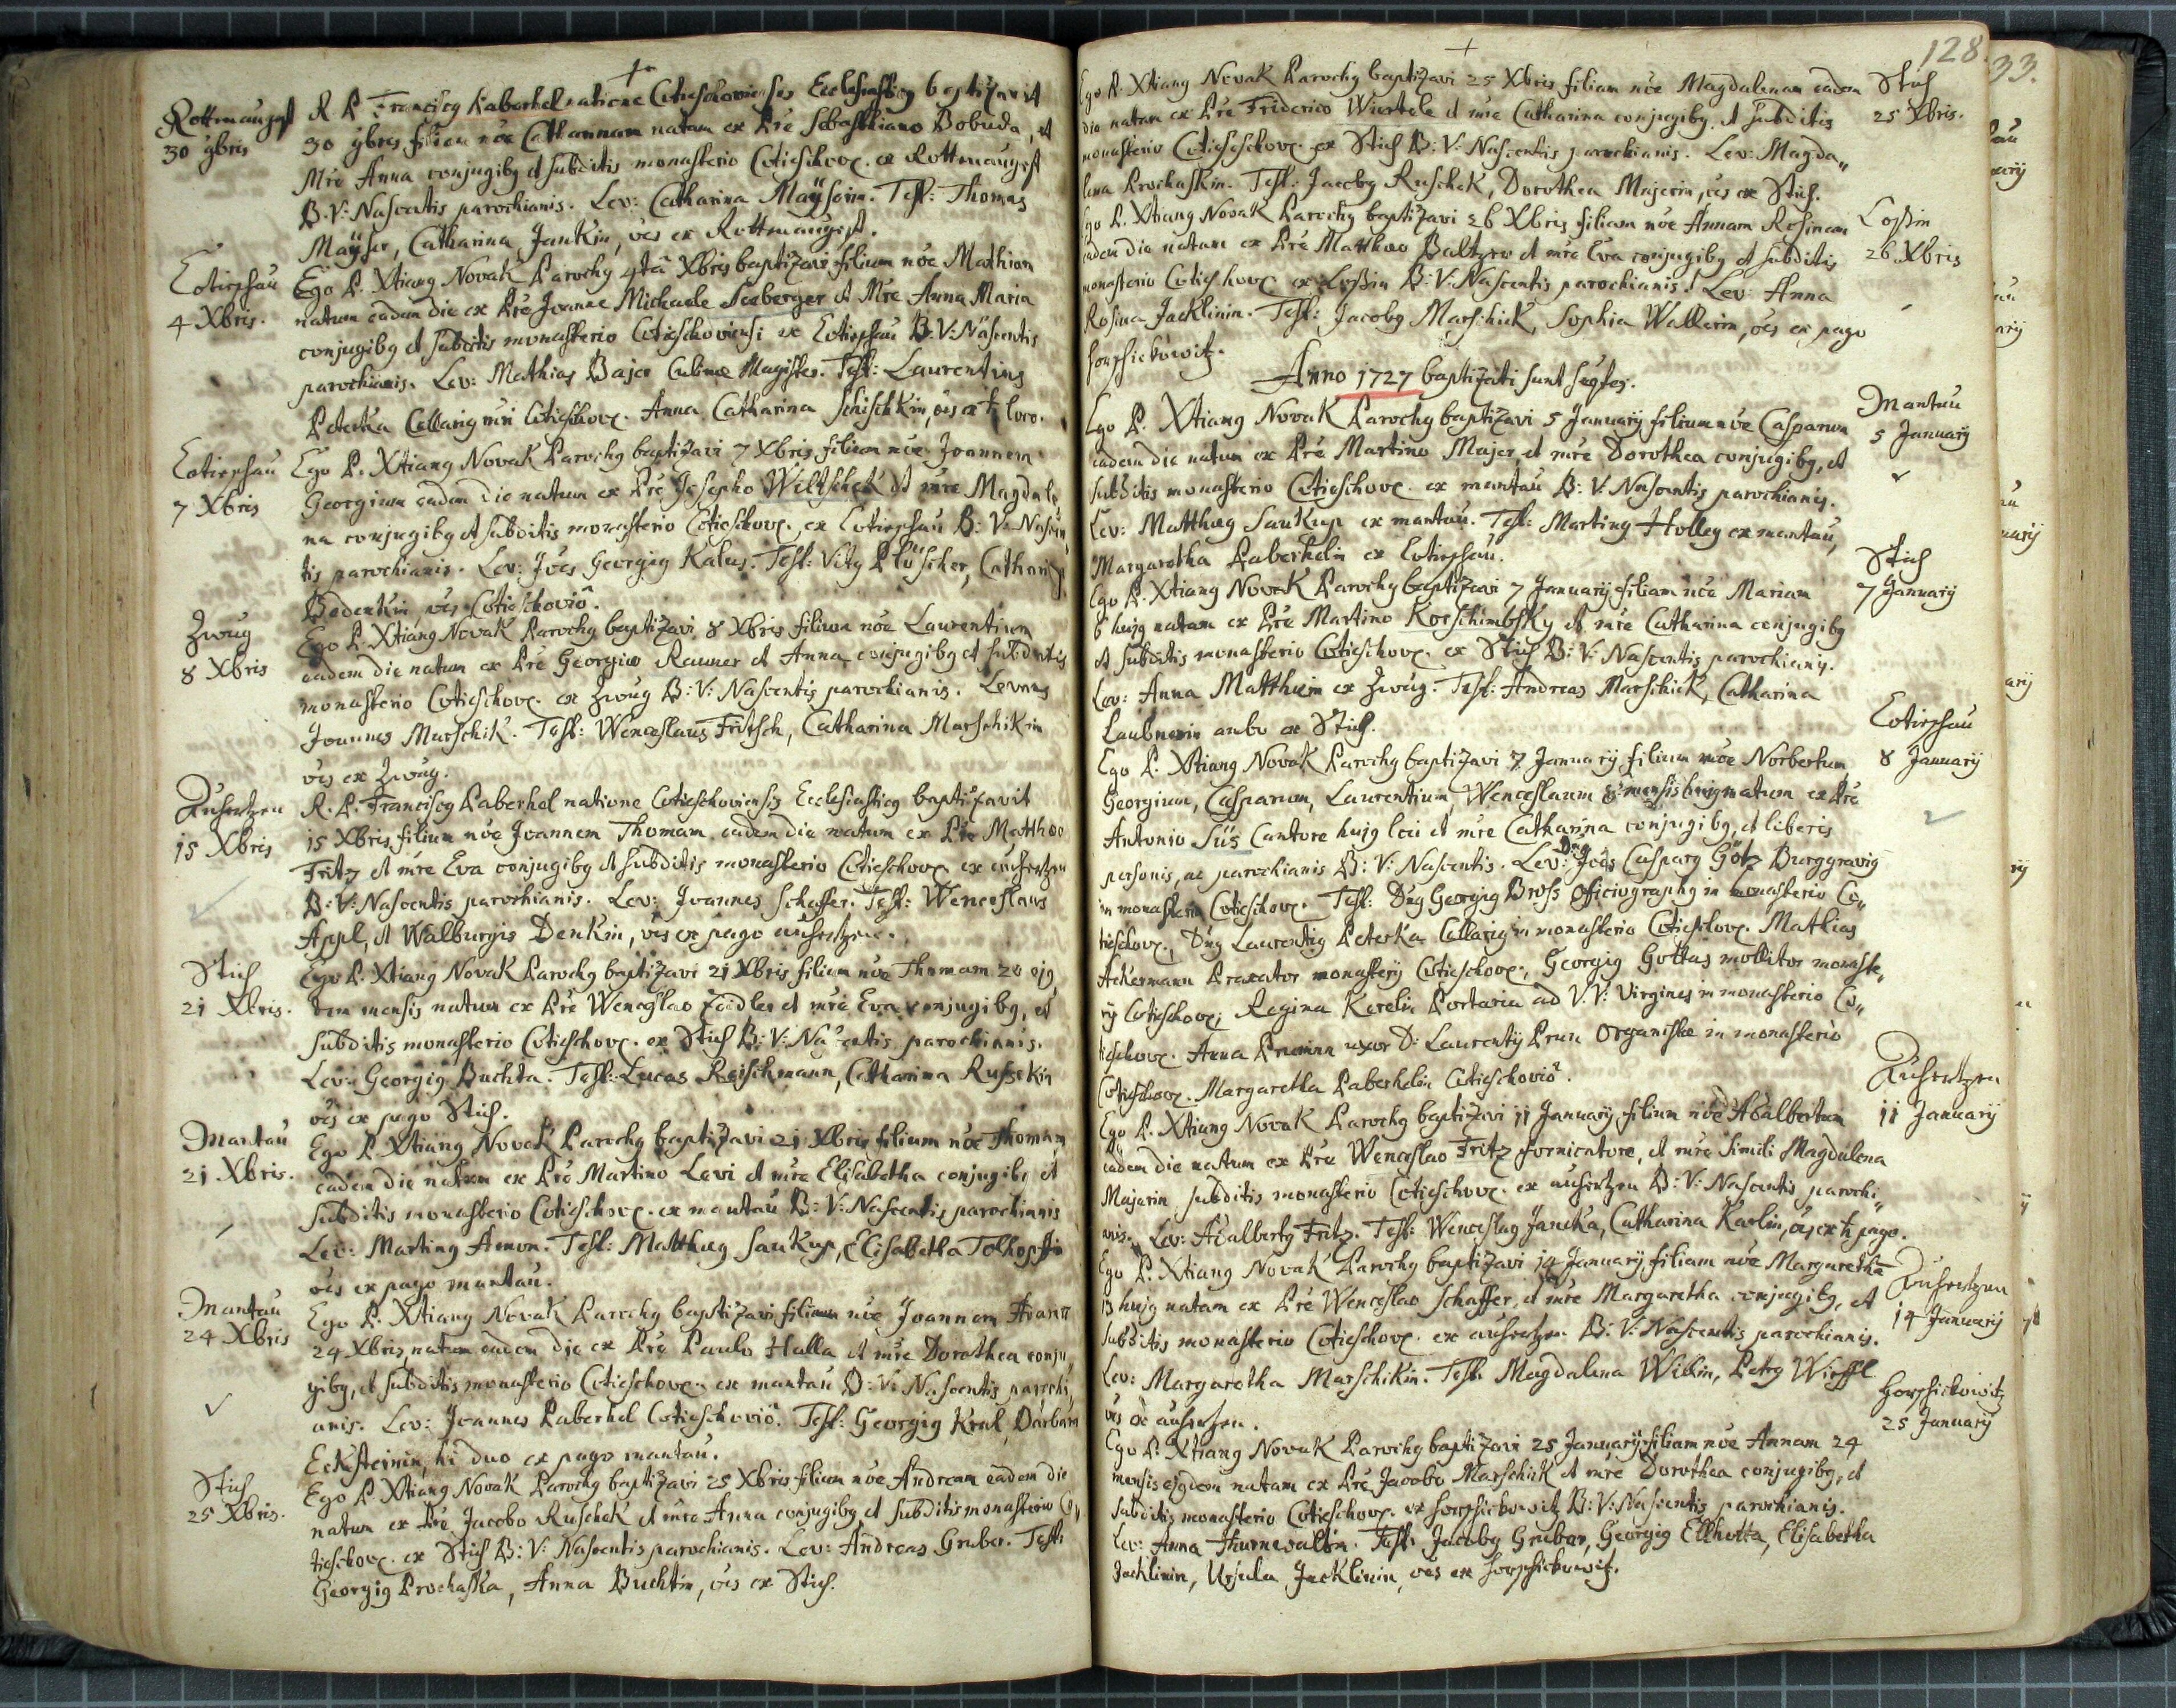 Rottmaugst
30 9bris
R P Franciscg Laberhel natione Cotieschoviensis Ecclesiasticg baptizavit
30 9bris filiam nõe Catharinam natam ex Pre Sebastiano Bobuda, et
Mre Anna conjugibg et subditis monasterio Cotieschov. ex Rottmaugst
B.V: Nascentis parochianis. Lev: Catharina Maÿserin. Test: Thomas
Maÿser, Catharina Jankin, oes ex Rottmaugst.
Cotieschau
4 Xbris.
Ego P. Xtiang Novak Parochg 4ta Xbris baptizavi filium nõe Mathiam
natum eadem die ex Pre Joanne Michaele Seeberger et Mre Anna Maria
conjugibg et subditis monasterio Cotieschoviensi ex Cotieschau B.V. Nascentis
parochianis. Lev: Mathias Bajer Culinae Magister. Test: Laurentius
Peterka Cellarig mri Cotieschov. Anna Catharina Schischkin, oes ex h loco.
Cotieschau
7 Xbris
Ego P. Xtiang Novak Parochg baptizavi 7 Xbris filium nõe Joannem
Georgium eadem die natum ex Pre Josepho Wiltschek et mre Magdale
na conjugibg et subditis monasterio Cotieschov. ex Cotieschau B: V: Nascen
tis parochianis. Lev: Joes Georgig Kalus. Test: Vitg Pluscher, Catharina
Badentkin oes Cotieschoviô.
Zwug
8 Xbris
Ego P. Xtiang Novak Parochg baptizavi 8 Xbris filium nõe Laurentium
eadem die natum ex Pre Georgio Rauner et Anna conjugibg et subditis
monasterio Cotieschov. ex Zwug B: V: Nascentis parochianis. Levans
Joannes Marschik. Test: Wenceslaus Fritsch, Catharina Marschikin
oes ex Zwug.
Auherzen
15 Xbris
R. P. Franciscg Laberhel natione Cotieschoviensis Ecclesiasticg baptizavit
15 Xbris filium nõe Joannem Thomam eadem die natum ex Pre Mattheo
Fritz et mre Eva conjugibg et subditis monasterio Cotieschov. ex auherzen
B: V: Nascentis parochianis. Lev: Joannes Schaffer. Test: Wenceslaus
Appl, et Walburgis Denkin, oes ex pago auherzen.
Stich
21 Xbris.
Ego P. Xtiang Novak Parochg baptizavi 21 Xbris filium nõe Thomam 20 ejg
dem mensis natum ex Pre Wenceslao Zoedler et mre Eva conjugibg, et
subditis monasterio Cotieschov. ex Stich B: V: Nascentis parochianis.
Lev: Georgig Buchta. Test: Lucas Reischmann, Catharina Russekin
oes ex pago Stich.
Mantau
21 Xbris.
Ego P. Xtiang Novak Parochg baptizavi 21 Xbris filium nõe Thomam
eadem die natum ex Pre Martino Levi et mre Elisabetha conjugibg et
subditis monasterio Cotieschov. ex mantau B: V: Nascentis parochianis
Lev: Marting Amon. Test: Mattheg Saukup, Elisabetha Tolhopffin
oes ex pago mantau.
Mantau
24 Xbris
Ego P. Xtiang Novak Parochg baptizavi filium nõe Joannem
24 Xbris natum eadem die ex Pre Paulo Halla et mre Dorothea conju„
gibg, et subditis monasterio Cotieschov. ex mantau B: V: Nascentis parochi„
anis. Lev: Joannes Laberhel Cotieschoviô. Test: Georgig Kral, Barbara
Ecksteinin, hi duo ex pago mantau.
Stich
25 Xbris.
Ego P. Xtiang Novak Parochg baptizavi 25 Xbris filium nõe Andream eadem die
natum ex Pre Jacobo Ruschek et mre Anna conjugibg et subditis monasterio Co„
tieschov. ex Stich B: V: Nascentis parochianis. Lev: Andreas Gruber. Test:
Georgig Prochaska, Anna Buchtin, oes ex Stich.
128
33.
Stich
25 Xbris.
Ego P. Xtiang Novak Parochg baptizavi 25 Xbris filiam nõe Magdalenam eadem
die natam ex Pre Friderico Wurtele et mre Catharina conjugibg et subditis
monasterio Cotieschov. ex Stich B: V: Nascentis parochianis. Lev: Magda„
lena Prochaskin. Test: Jacobg Ruschek, Dorothea Majerin, oes ex Stich.
Loßin
26 Xbris
Ego P. Xtiang Novak Parochg baptizavi 26 Xbris filiam nõe Annam Rosinam
eadem die natam ex Pre Mattheo Baltzer et mre Eva conjugibg et subditis
monasterio Cotieschov. ex Loßin B: V: Nascentis parochianis. Lev: Anna
Rosina Jacklinin. Test: Jacobg Marschick, Sophia Wallerin, oes ex pago
horschickowitz.
Anno 1727 baptizati sunt seqtes.
Mantau
5 January
Ego P. Xtiang Novak Parochg baptizavi 5 January filium nõe Casparum
eadem die natum ex Pre Martino Majer et mre Dorothea conjugibg, et
subditis monasterio Cotieschov. ex mantau B: V: Nascentis parochianis.
Lev: Mattheg Saukup ex mantau. Test: Marting Holley ex mantau,
Margaretha Laberhelin ex Cotieschau.
Stich
7 January
Ego P. Xtiang Novak Parochg baptizavi 7 January filiam nõe Mariam
6 hujg natam ex Pre Martino Korschimbsky et mre Catharina conjugibg
et subditis monasterio Cotieschov. ex Stich B: V: Nascentis parochianis.
Lev: Anna Matthein ex Zwug. Test: Andreas Marschick, Catharina
Laubnerin ambo ex Stich.
Cotieschau
8 January
Ego P. Xtiang Novak Parochg baptizavi 7 January filium nõe Norbertum
Georgium, Casparum, Laurentium, Wenceslaum 8 mensis hujg natum ex Pre
Antonio Süs Cantore hujg loci et mre Catharina conjugibg, et liberis
personis, ac parochianis B: V: Nascentis. Lev: Dng Joes Casparg Götz Burggravig
in monasterio Cotieschov. Test: Dng Georgig Bross Officiographg in monasterio Co„
tieschov., Dng Laurentig Peterka Cellarig in monasterio Cotieschov. Mathias
Ackermann Braxator monastery Cotieschov., Georgig Guttas mollitor monaste„
ry Cotieschov; Regina Kerelin Portaria ad V.V: Virgines in monasterio Co„
tieschov. Anna Prunin uxor D: Laurenty Prun Organistae in monasterio
Cotieschov. Margaretha Laberhelin Cotieschoviô.
Auherzen
11 January
Ego P. Xtiang Novak Parochg baptizavi 11 January filium nõe Adalbertum
eadem die natum ex Pre Wenceslao Fritz fornicatore, et mre simili Magdalena
Majerin subditis monasterio Cotieschov. ex auherzen B: V: Nascentis parochi„
anis. Lev: Adalbertg Fritz. Test: Wenceslag Janeka, Catharina Karlin, oes ex h pago.
Auherzen
14 January
Ego P. Xtiang Novak Parochg baptizavi 14 January filiam nõe Margaretha
13 hujg natam ex Pre Wenceslao Schaffer, et mre Margaretha conjugibg, et
subditis monasterio Cotieschov. ex auherzen B: V: Nascentis parochianis.
Lev: Margaretha Marschikin. Test: Magdalena Willin, Petrg Wirffl
oes ex auherzen.
Horschickowitz
25 January
Ego P. Xtiang Novak Parochg baptizavi 25 January filiam nõe Annam 24
mensis ejgdem natam ex Pre Jacobo Marschick et mre Dorothea conjugibg, et
subditis monasterio Cotieschov. ex horschickowitz B: V: Nascentis parochianis.
Lev: Anna Thurnwaltin. Test: Jacobg Gruber, Georgig Ellhotta, Elisabetha
Jacklinin, Ursula Jacklinin, oes ex horschickowitz.